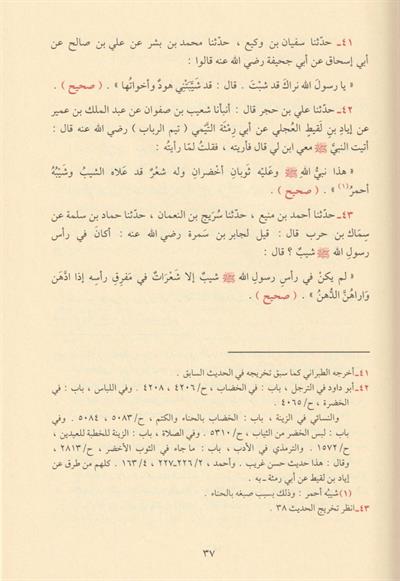 ٤١ـ حدّثنا سفيان بن وكيع ، حدّثنا محمد بن بشر عن علي بن صالح عن
أبي إسحاق عن أبي جحيفة رضي الله عنه قالوا :
« يا رسولَ الله نراكَ قد شبْتَ . قال : قد شَيَّبَتْنِي هودٌ وأخواتُها » . ( صحيح ) .
٤٢ـ حدّثنا علي بن حجر قال : أنبأنا شعيب بن صفوان عن عبد الملك بن عمير
عن إيادِ بنِ لَقيطِ العُجلي عن أبي رِمْثَةَ التَّيْمي ( تيم الرباب ) رضي الله عنه قال :
أتيت النبيَّ ﷺ معي ابن لي قال فأريته ، فقلتُ لمّا رأيتُه :
« هذا نبيُّ اللهِ ﷺ وعَلَيْه ثَوبانِ أخْضرانِ وله شعْرٌ قد عَلاه الشيبُ وشَيْبُه
أحمرُ(١) » . ( صحيح ) .
٤٣ـ حدّثنا أحمد بن منيع ، حدّثنا سُرَيج بن النعمان ، حدّثنا حماد بن سلمة عن
سِمَاك بن حرب قال : قيل لجابر بن سَمرة رضي الله عنه : أكانَ في رأس
رسولِ الله ﷺ شيبٌ ؟ قال :
« لم يكنْ في رأسِ رسولِ الله ﷺ شيبٌ إلا شَعْرَاتٌ في مَفرِقِ رأسِه إذا ادَّهَن
وَاراهُنَّ الدُّهنُ » . ( صحيح ) .
٤١ـ أخرجه الطبراني كما سبق تخريجه في الحديث السابق .
٤٢ـ أبو داود في الترجل ، باب : في الخضاب ، ح/ ٤٢٠٦ ، ٤٢٠٨ . وفي اللباس ، باب : في
الخضرة ، ح/ ٤٠٦٥ .
والنسائي في الزينة ، باب : الخضاب بالحناء والكتم ، ح/ ٥٠٨٣ ، ٥٠٨٤ . وفي
باب : لبس الخضر من الثياب ، ح/ ٥٣١٠ . وفي الصلاة ، باب : الزينة للخطبة للعيدين ،
ح/ ١٥٧٢ . والترمذي في الأدب ، باب : ما جاء في الثوب الأخضر ، ح/ ٢٨١٣ ،
وقال : هذا حديث حسن غريب . وأحمد ، ٢/ ٢٢٦ـ٢٢٧ ، ٤/ ١٦٣ . كلهم من طرق عن
إياد بن لقيط عن أبي رمثة ـ به .
(١) شيبُه أحمر : وذلك بسبب صبغه بالحناء .
٤٣ـ انظر تخريج الحديث ٣٨ .
٣٧